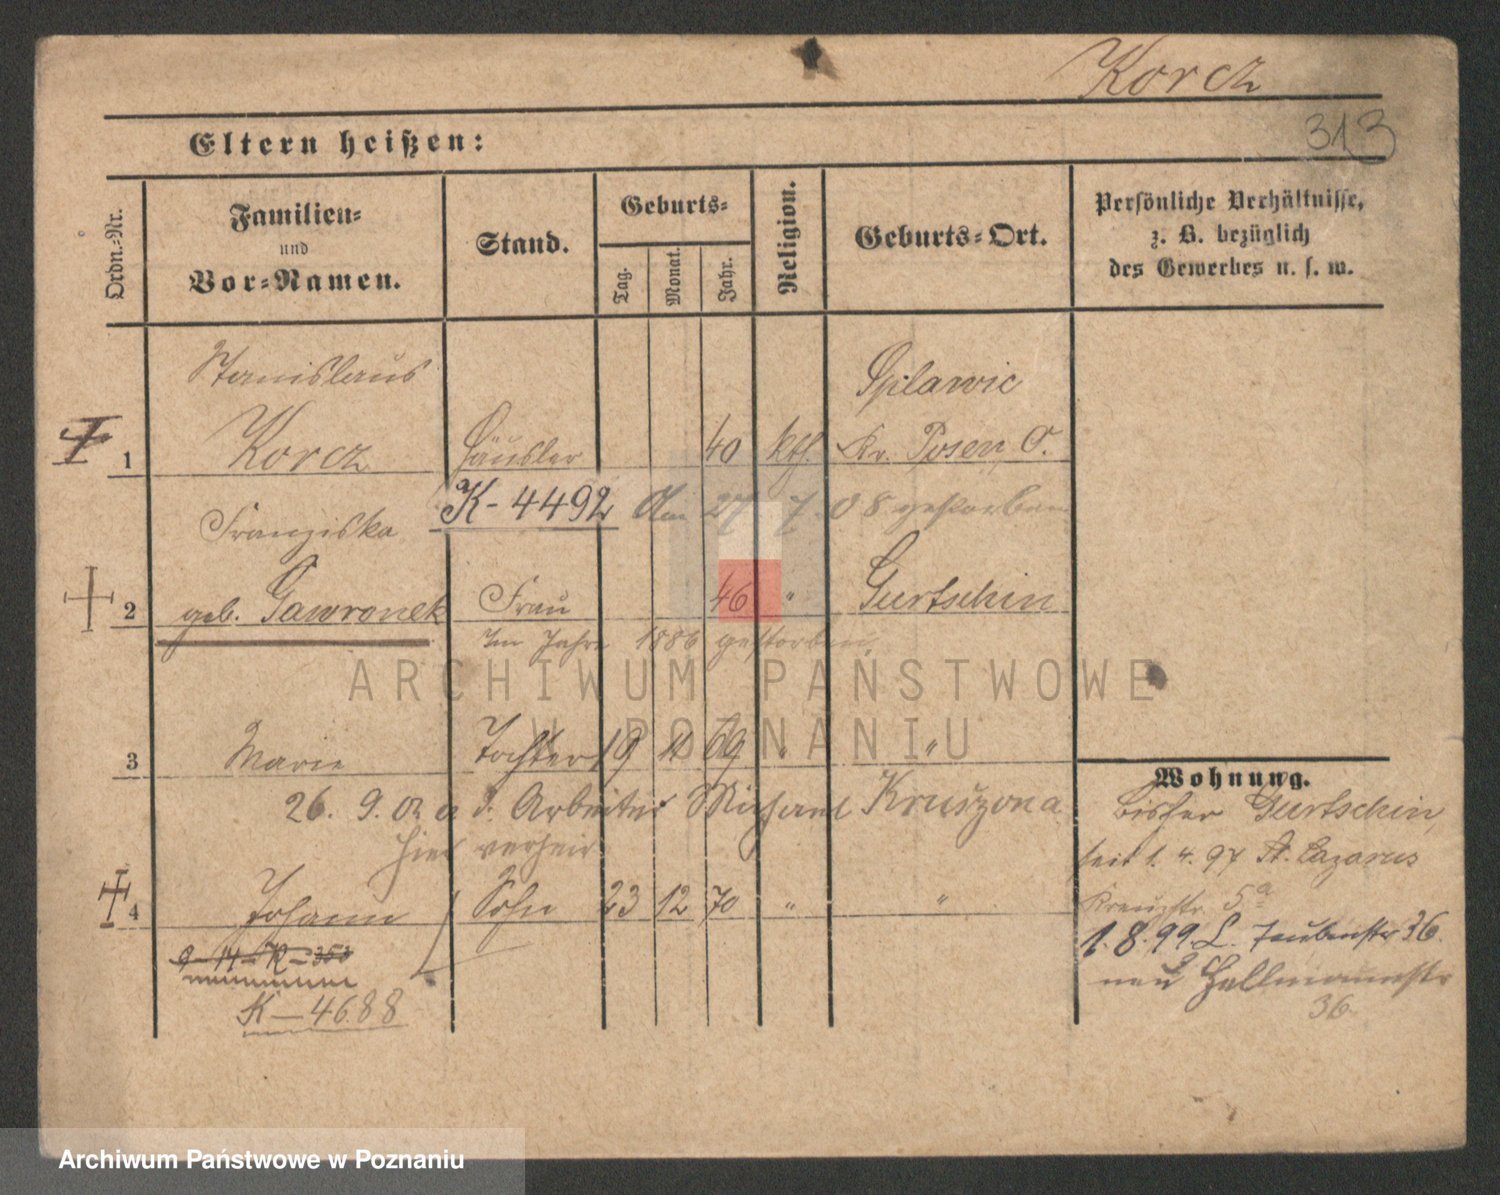 Korcz
313
Eltern heißen:
Ordn.-Nr.
Familien-
und
Vor-Namen.
Stand.
Geburts-
Tag.
Monat.
Jahr.
Religion.
Geburts-Ort.
Persönliche Verhältnisse,
z. B. bezüglich
des Gewerbes u. s. w.
Stanislaus
Splawie
1 Korcz Häusler 40 kth. Kr. Posen, O.
K-4492 Am 27 7. 08 gestorben
Franziska
2 geb. Gawronek Frau 46 " Gurtschin
Im Jahre 1886 gestorben.
3 Marie Tochter 19 11 69 " "
26. 9. 02 a. d. Arbeiter Michael Kruszona
hier verheir.
4 Johann Sohn 23 12 70 " "
9-14-K-353
K-4688
Wohnung.
bisher Gurtschin,
seit 1. 4. 97 St. Lazarus
Kreuzstr. 5a
1.8.99. L. Taubenstr 36.
neu Hallmannstr
36
ARCHIWUM PAŃSTWOWE
W POZNANIU
Archiwum Państwowe w Poznaniu